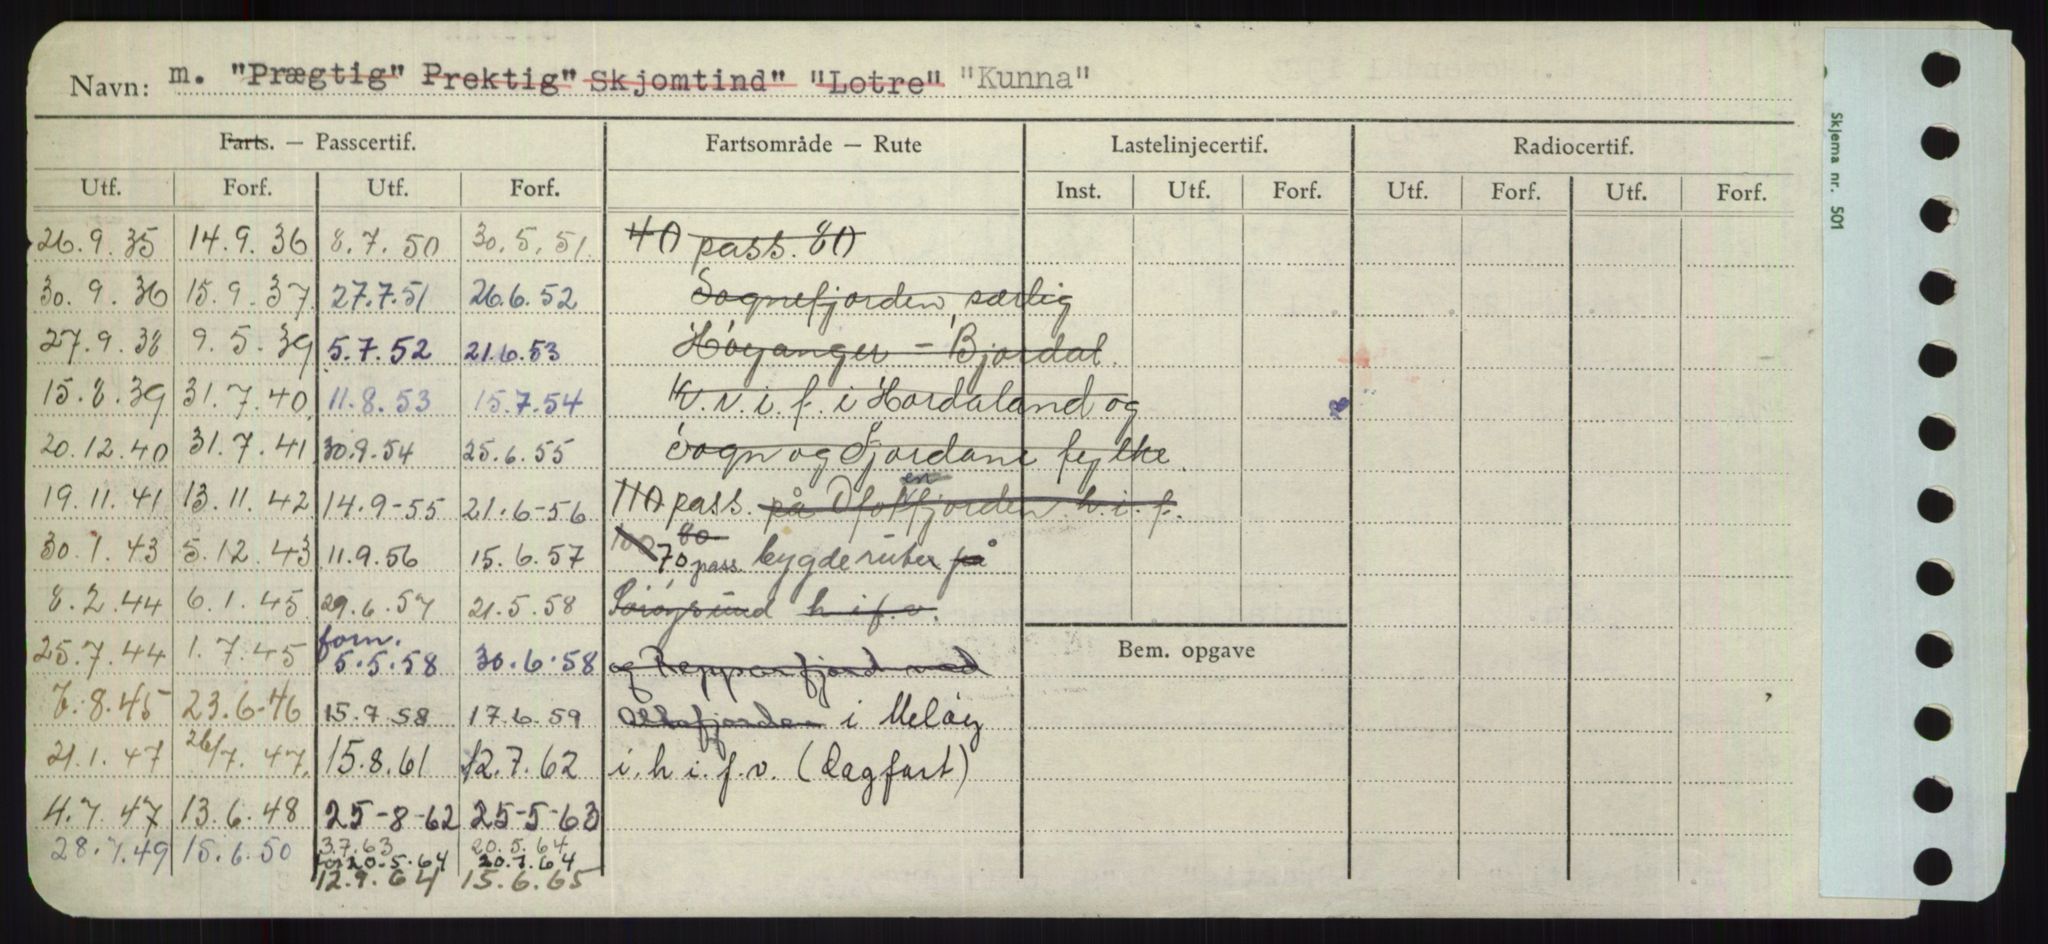 Navn: m. "Prægtig" Prektig" Skjomtind" "Lotre" "Kunna"
Farts. — Passcertif. Fartsområde — Rute Lastelinjecertif. Radiocertif.
Utf. Forf. Utf. Forf. Inst. Utf. Forf. Utf. Forf. Utf. Forf.
26.9.35 14.9.36 8.7.50 30.5.51. 40 pass. 80
30.9.36 15.9.37 27.7.51 26.6.52 Sognefjorden, særlig
27.9.38 9.5.39 5.7.52 21.6.53 Høyanger - Bjordal.
15.8.39 31.7.40 11.8.53 15.7.54 K.v.i.f. i Hordaland og
20.12.40 31.7.41 30.9.54 25.6.55 Sogn og Fjordane fylke.
en
19.11.41 13.11.42 14.9-55 21.6-56 110 pass. på Ofotfjorden h.i.f.
100 80
30.1.43 5.12.43 11.9.56 15.6.57 70 pass. bygderuter på
8.2.44 6.1.45 29.6.57 21.5.58 h.i.f.v.
forn.
25.7.44 1.7.45 5.5.58 30.6.58 og Repparfjord med
Bem. opgave
7.8.45 23.6-46 15.7.58 17.6.59 Altafjorden i Meløy
21.1.47 26/7.47. 15.8.61 12.7.62 i.h.i.f.v. (Dagfart)
4.7.47 13.6.48 25-8-62 25-5-63
28.7.49 15.6.50 3.7.63 20.5.64
for 20.5.64 20.7.64
12.9.64 15.6.65
Skjema nr. 501